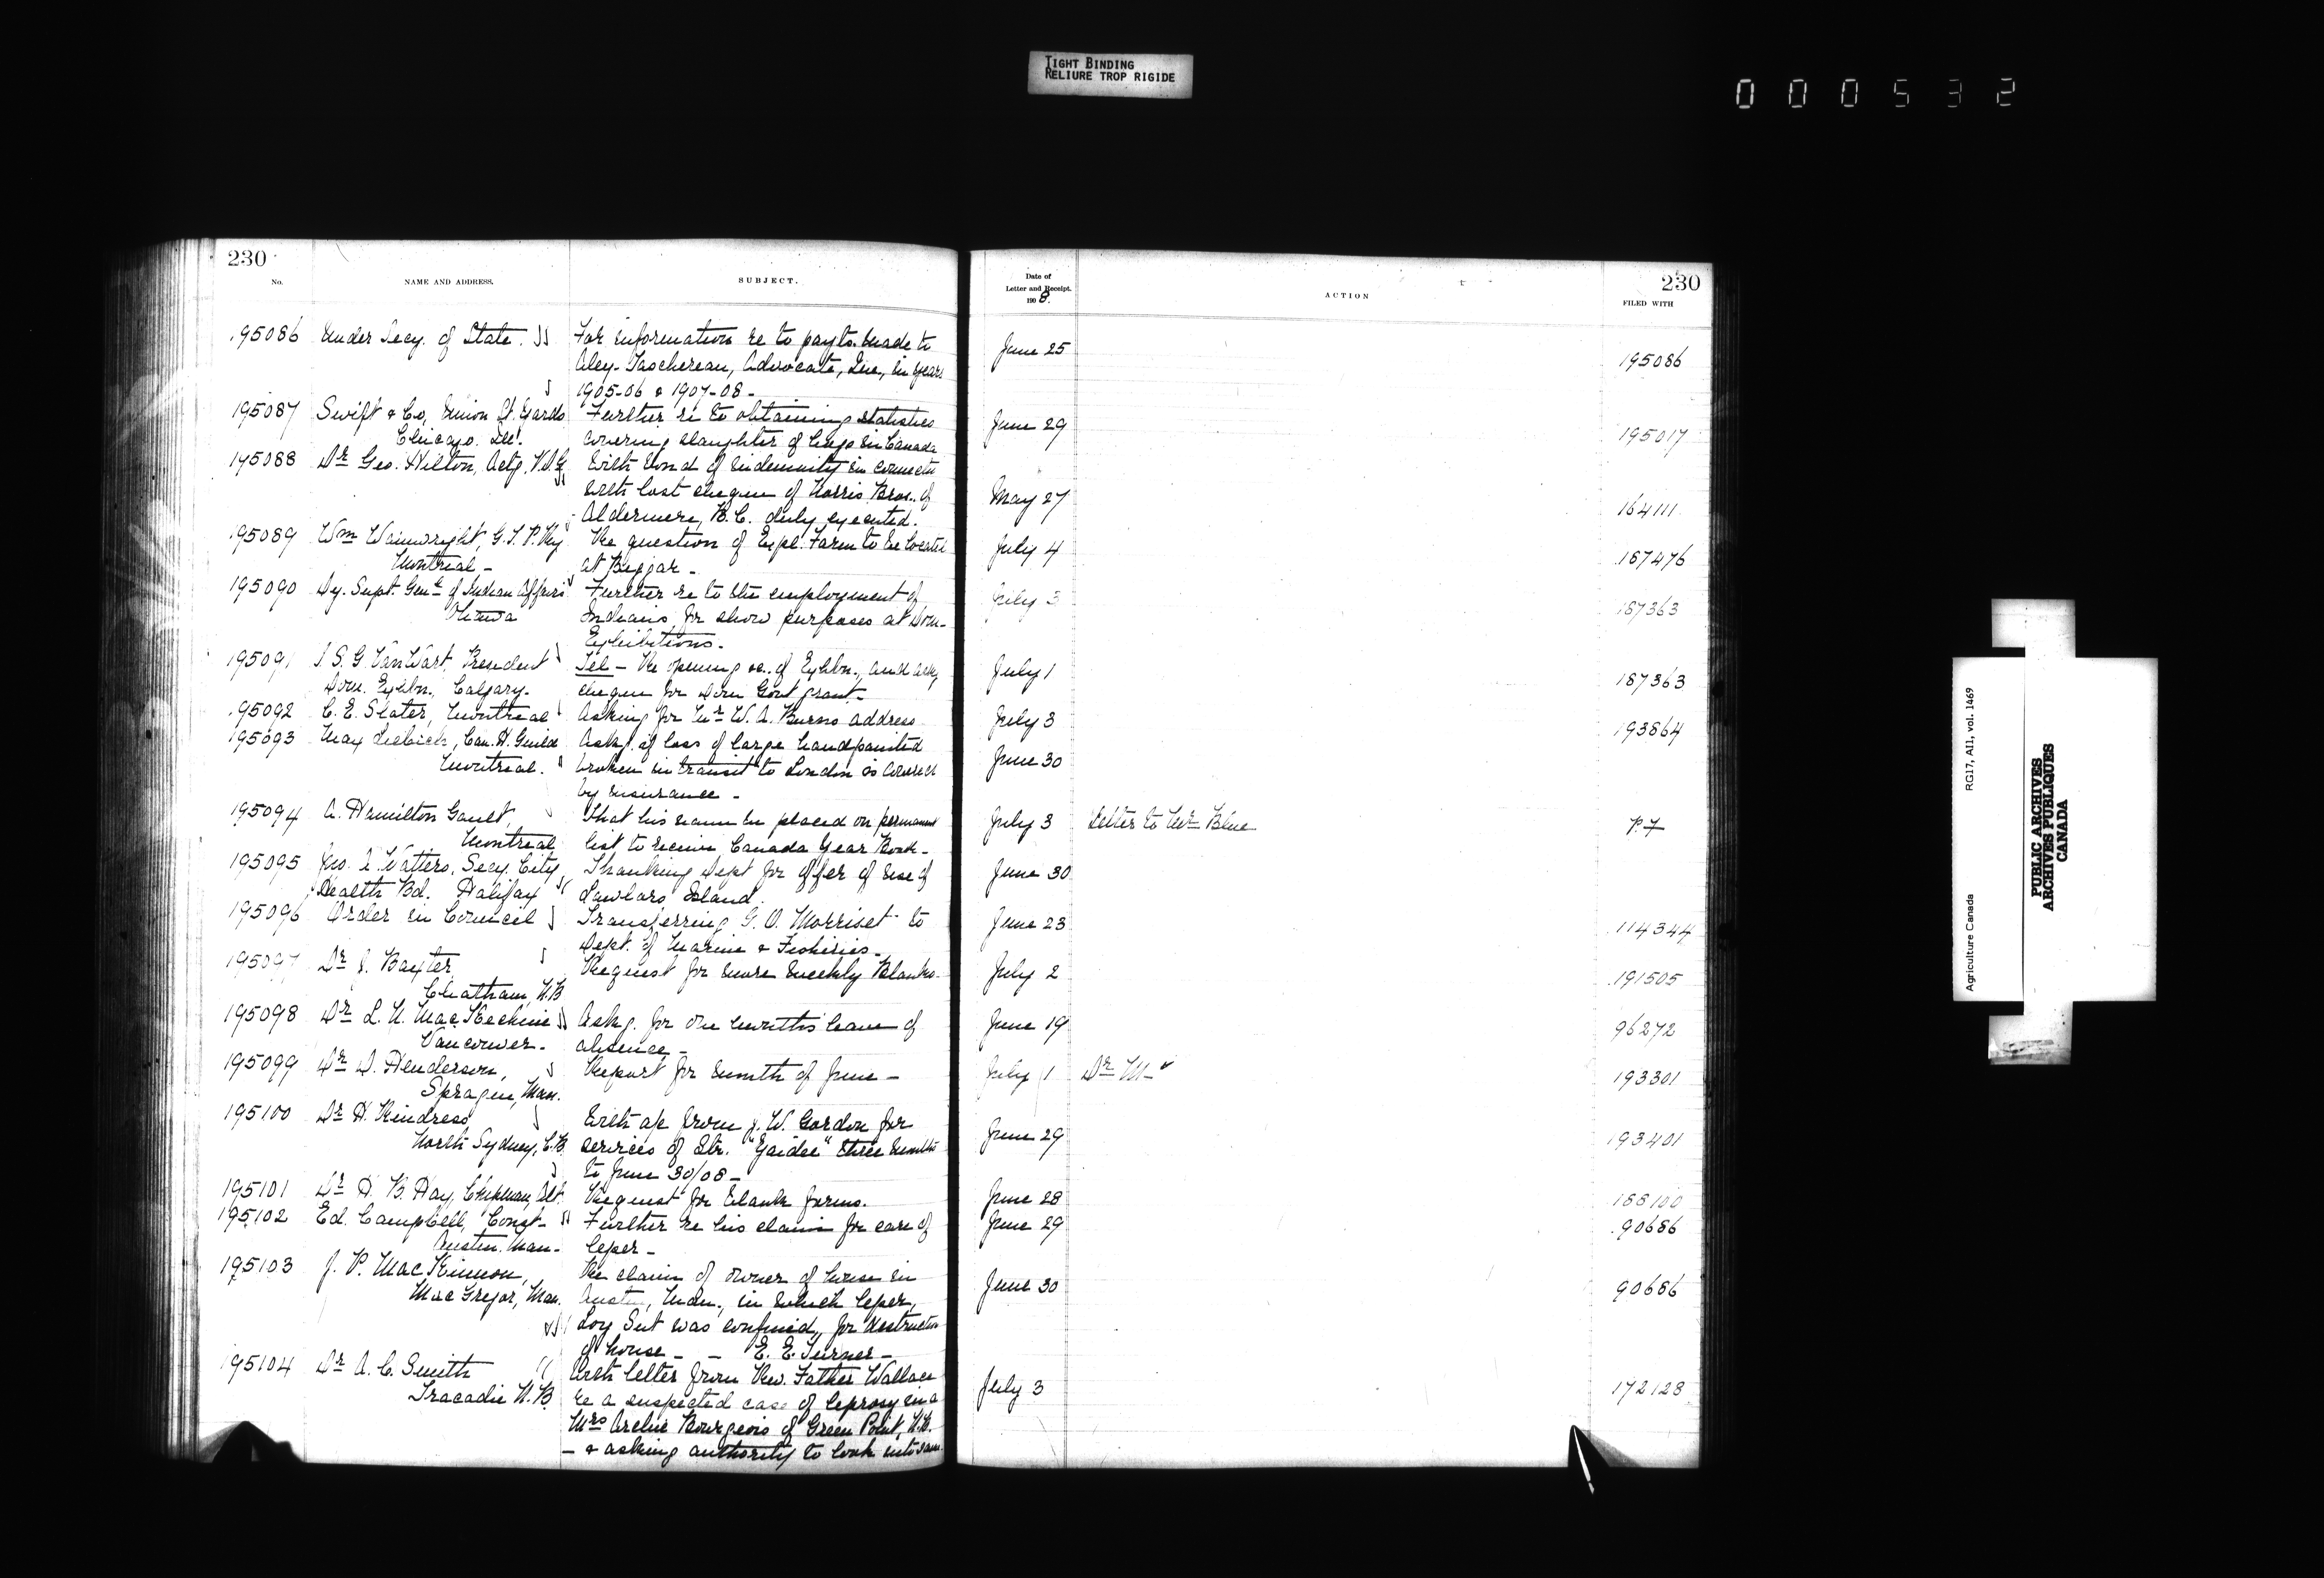 TIGHT BINDING
RELIURE TROP RIGIDE
000532
230
No. NAME AND ADDRESS. SUBJECT.
195086 Under Secy. of State. For information re to payts. made to
Alex. Taschereau, Advocate, Que., in years
1905-06 & 1907-08 -
195087 Swift & Co, Union St. Yards Further re to obtaining statistics
Chicago. Ill. covering slaughter of hogs in Canada
195088 Dr Geo. Hilton, Actg. V.D.G. With bond of indemnity in connectn
with lost cheque of Morris Bros. of
Aldermere, B.C. duly executed.
195089 Wm Wainwright, G.T.P. Ry Re question of Expl. Farm to be located
Montreal - at Biggar -
195090 Dy. Supt. Genl. of Indian Affairs Further re to the employment of
Ottawa Indians for show purposes at Dom.
Exhibitions.
195091 I. S. G. Van Wart, President Tel - Re opening &c. of Exhbn., and ask,
Dom. Exhbn., Calgary. cheque for Dom Govt grant -
195092 C. E. Slater, Montreal Asking for Mr W. A. Burns address
195093 May Liebich, Can. H. Guild Askg. if loss of large handpainted
Montreal. broken in transit to London is covered
by insurance -
195094 A. Hamilton Gault, That his name be placed on permanent
Montreal list to receive Canada Year Book -
195095 Jno. A. Watters, Secy. City Thanking Dept for offer of use of
Health Bd. Halifax Lawlors Island.
195096 Order in Council Transferring G. O. Morriset to
Dept. of Marine & Fisheries -
195097 Dr J. Baxter, Request for more weekly Blanks -
Chatham, N.B.
195098 Dr L. N. MacKechnie Askg. for one month's leave of
Vancouver - absence -
195099 Dr D. Henderson, Report for month of June -
Sprague, Man.
195100 Dr H. Rindress With a/c from J. W. Gordon for
North Sydney, C.B. services of Str. "Gaidee" three months
to June 30/08 -
195101 Dr H. B. Hay, Chipman, Alt. Request for blank forms.
195102 Ed. Campbell, Const. Further re his claim for care of
Austin. Man - leper -
195103 J. P. MacKinnon, Re claim of owner of house in
MacGregor, Man. Austin, Man., in which leper,
Loy Sut was confined, for destruction
of house - - E. E. Turner -
195104 Dr A. C. Smith With letter from Rev. Father Wallace
Tracadie N.B. re a suspected case of leprosy in a
Mrs Archie Bourgeois of Green Point, N.B.
- & asking authority to look into same
230
Date of Letter and Receipt. 1908. ACTION FILED WITH
June 25 195086
June 29 195017
May 27 164111
July 4 187476
July 3 187363
July 1 187363
July 3 193864
June 30
July 3 Letter to Mr Blue P.7
June 30
June 23 114344
July 2 191505
June 19 96272
July 1 Dr M - 193301
June 29 193401
June 28 188100
June 29 90686
June 30 90686
July 3 172128
Agriculture Canada RG17, AI1, vol. 1469
PUBLIC ARCHIVES
ARCHIVES PUBLIQUES
CANADA